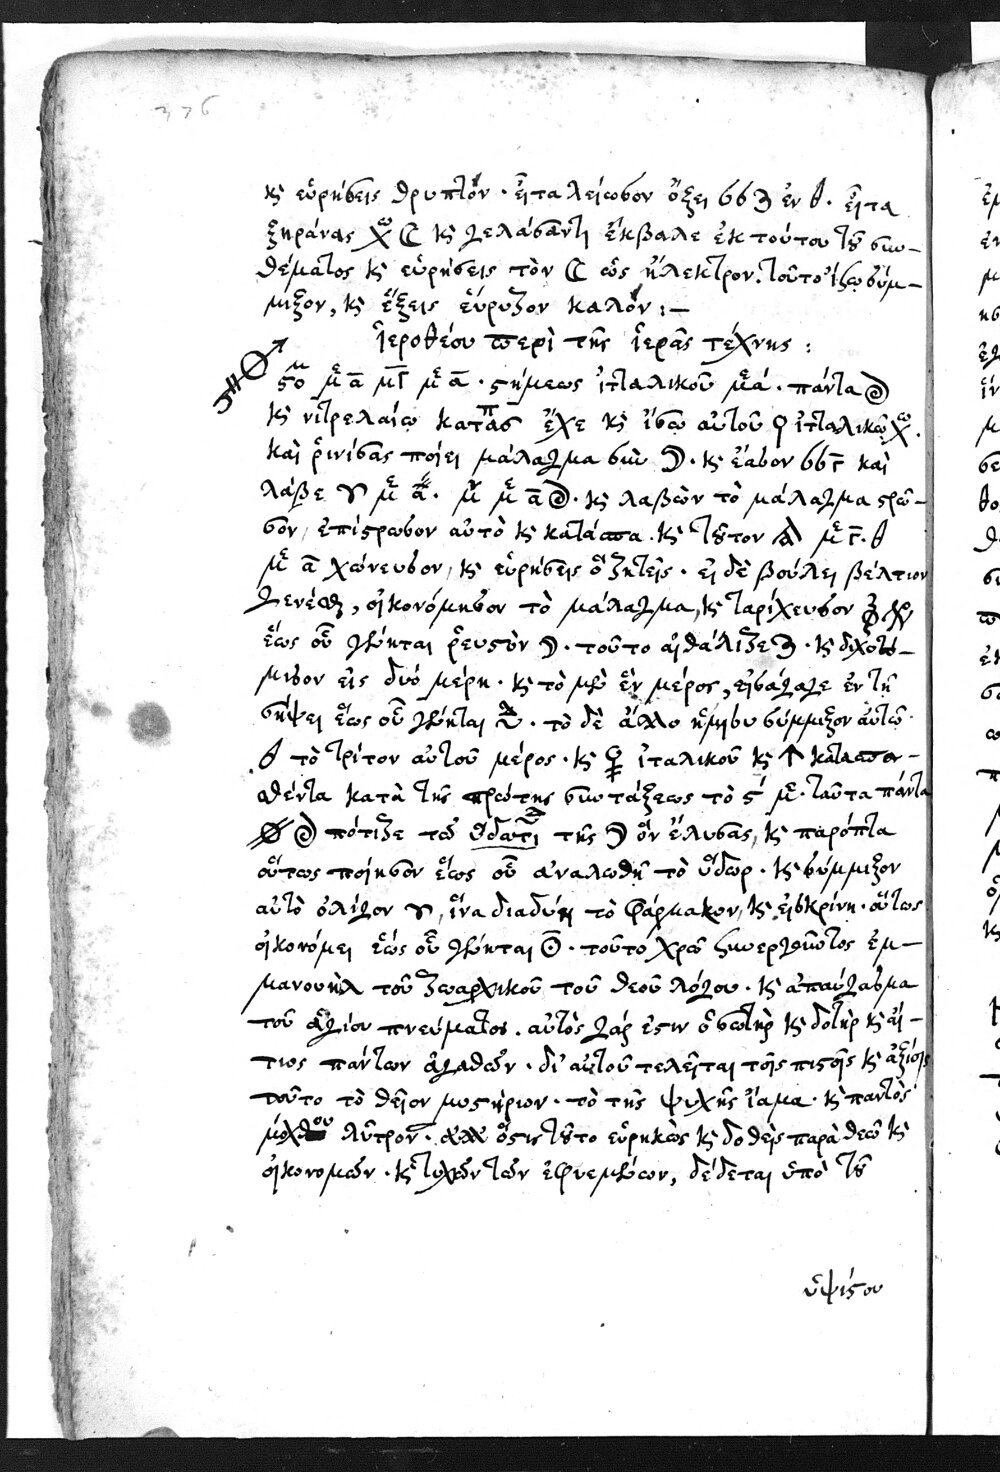 376
κ εὑρήσεις θρυπτόν. εἶτα λείωσον ὄξει ἐν. εἶτα
ξηράνας κ γελάσαντι ἔκβαλε ἐκ τούτου τοῦ συν-
θέματος κ εὑρήσεις τὸν ☾ ὡς ἤλεκτρον. τοῦτο ἴσῳ σύμ-
μιξον, κ ἕξεις εὔρυζον καλόν :-
ἱεροθέου περὶ τῆς ἱερᾶς τέχνης :
στήμεως ἰταλικοῦ. πάντα
κ νιτρελαίῳ ἔχε κ ἴσῳ αὐτοῦ ἰταλικῷ.
καὶ ῥινίσας ποίει μάλαγμα σὺν ☽. κ ἔασον καὶ
λάβε. κ λαβὼν τὸ μάλαγμα στρῶ-
σον, ἐπίστρωσον αὐτὸ κ κατάσπα. κ τοῦτον
χώνευσον, κ εὑρήσεις ὃ ζητεῖς. εἰ δὲ βούλει βέλτιον
γενέσθαι, οἰκονόμησον τὸ μάλαγμα, κ ταρίχευσον
ἕως οὗ γένηται ῥευστὸν ☽. τοῦτο αἰθάλιζε. κ διχοτό-
μισον εἰς δυό μέρη. κ τὸ μὲν ἓν μέρος, εἰσάγαγε ἐν τῇ
σήψει ἕως οὗ γένηται. τὸ δὲ ἄλλο ἥμισυ σύμμιξον αὐτῷ
τὸ τρίτον αὐτοῦ μέρος. κ ἰταλικοῦ κ κατασπα-
θέντα κατὰ τῆς πρώτης συντάξεως τὸ. ταῦτα πάντα
πότιζε τῷ ὕδατι τῆς ☽ ὃν ἔλυσας, κ παρόπτα
οὕτως ποίησον ἕως οὗ ἀναλωθῇ τὸ ὕδωρ. κ σύμμιξον
αὐτὸ ὀλίγον, ἵνα διαδύῃ τὸ φάρμακον, κ εἰσκρίνῃ. οὕτως
οἰκονόμει ἕως οὗ γένηται. τοῦτο χρῶ συνεργοῦντος ἐμ-
μανουὴλ τοῦ ζωαρχικοῦ τοῦ θεοῦ λόγου. κ ἀπαύγασμα
τοῦ ἁγίου πνεύματος. αὐτὸς γάρ ἐστιν ὁ σωτὴρ κ δοτὴρ κ αἴ-
τιος πάντων ἀγαθῶν. δι' αὐτοῦ τελεῖται τοῖς πιστοῖς κ ἀξίοις
τοῦτο τὸ θεῖον μυστήριον. τὸ τῆς ψυχῆς ἴαμα. κ παντὸς
μόχθου λύτρον. ὅστις τοῦτο εὑρηκὼς κ δοθεὶς παρὰ θεῷ κ
οἰκονομῶν. κ τυχὼν τῶν ἐφιεμένων, δέδεται ὑπὸ τοῦ
ὑψίστου